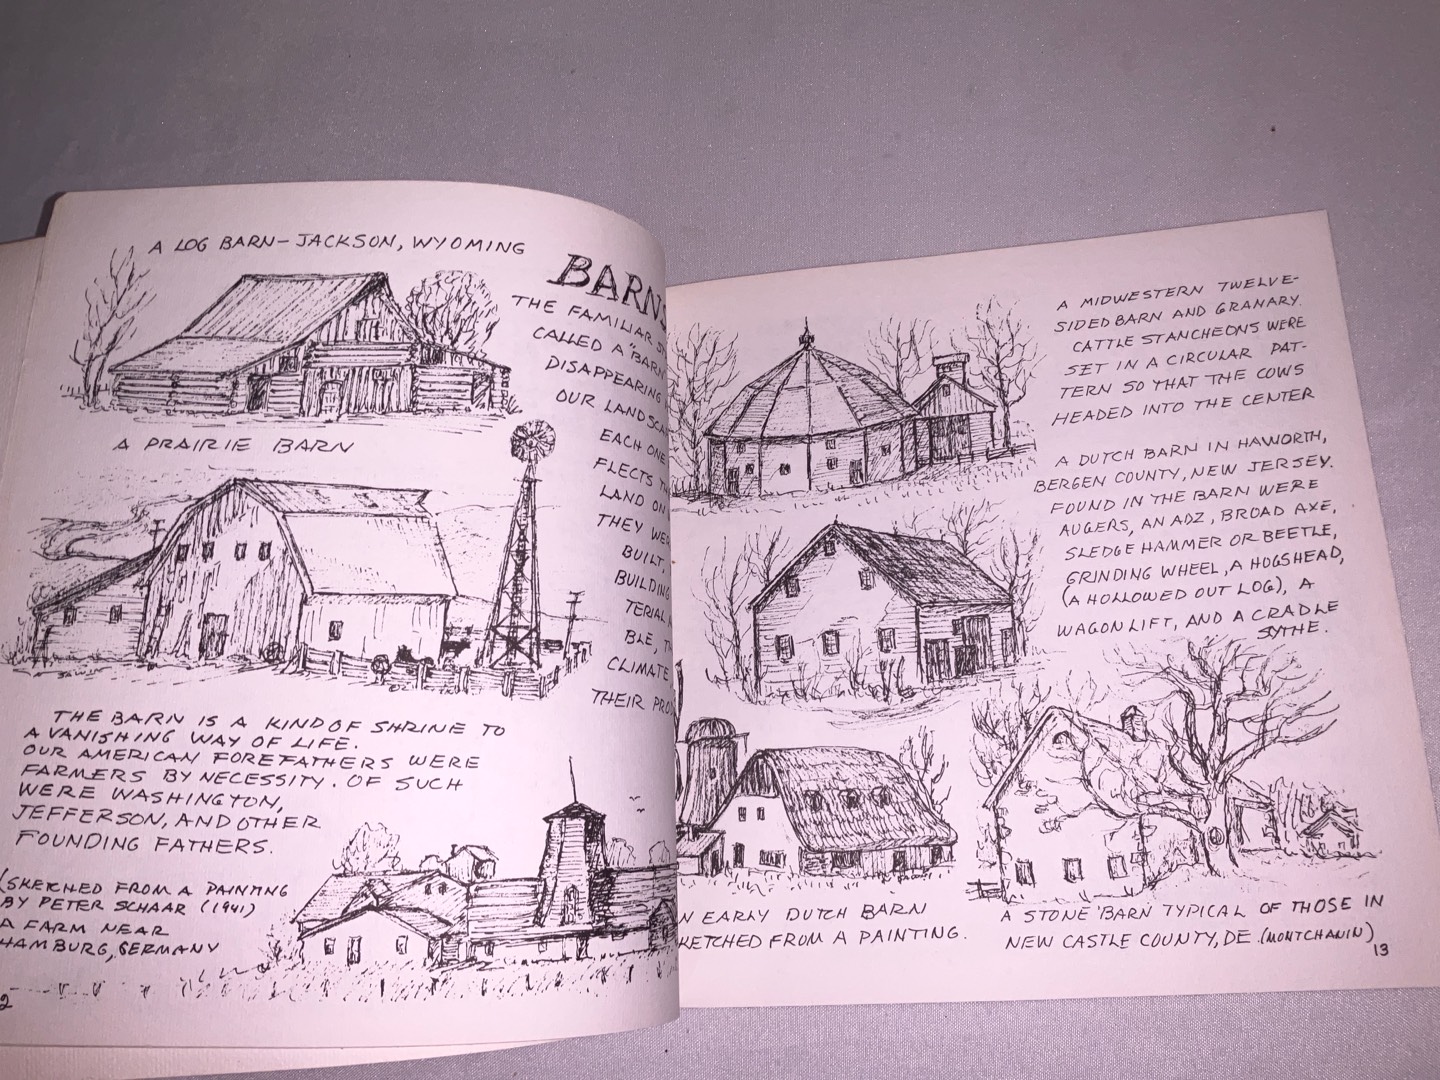 A LOG BARN - JACKSON, WYOMING
BARNS
THE FAMILIAR
CALLED A "BARN
DISAPPEARING
OUR
EACH ONE
LAND ON
THEY
BUILT,
BUILDING
CLIMATE
THEIR
A PRAIRIE BARN
THE BARN IS A KIND OF SHRINE TO
A VANISHING WAY OF LIFE.
OUR AMERICAN FOREFATHERS WERE
FARMERS BY NECESSITY. OF SUCH
WERE WASHINGTON,
JEFFERSON, AND OTHER
FOUNDING FATHERS.
(SKETCHED FROM A PAINTING
BY PETER SCHAAR (1941)
A FARM NEAR
HAMBURG, GERMANY
2
A MIDWESTERN TWELVE-
SIDED BARN AND GRANARY.
CATTLE STANCHEONS WERE
SET IN A CIRCULAR PAT-
TERN SO THAT THE COWS
HEADED INTO THE CENTER
A DUTCH BARN IN HAWORTH,
BERGEN COUNTY, NEW JERSEY.
FOUND IN THE BARN WERE
AUGERS, AN ADZ, BROAD AXE,
SLEDGE HAMMER OR BEETLE,
GRINDING WHEEL, A HOGSHEAD,
(A HOLLOWED OUT LOG), A
WAGON LIFT, AND A CRADLE
SYTHE.
N EARLY DUTCH BARN
KETCHED FROM A PAINTING.
A STONE BARN TYPICAL OF THOSE IN
NEW CASTLE COUNTY, DE. (MONTCHANIN)
13